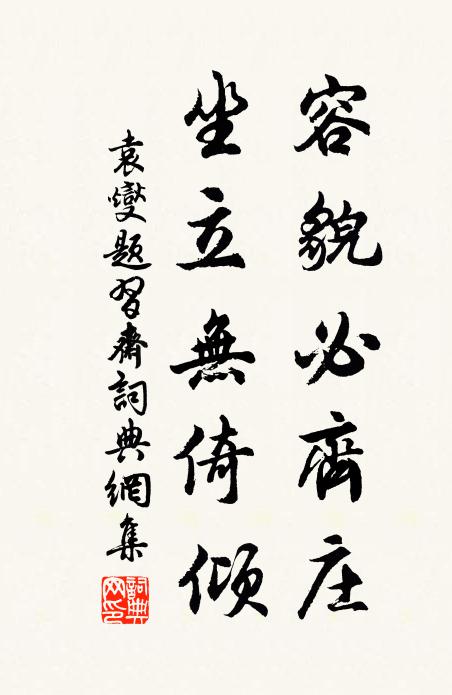 容貌必齊庄
坐立無倚傾
袁燮題習齋詞典網集
詞典網印